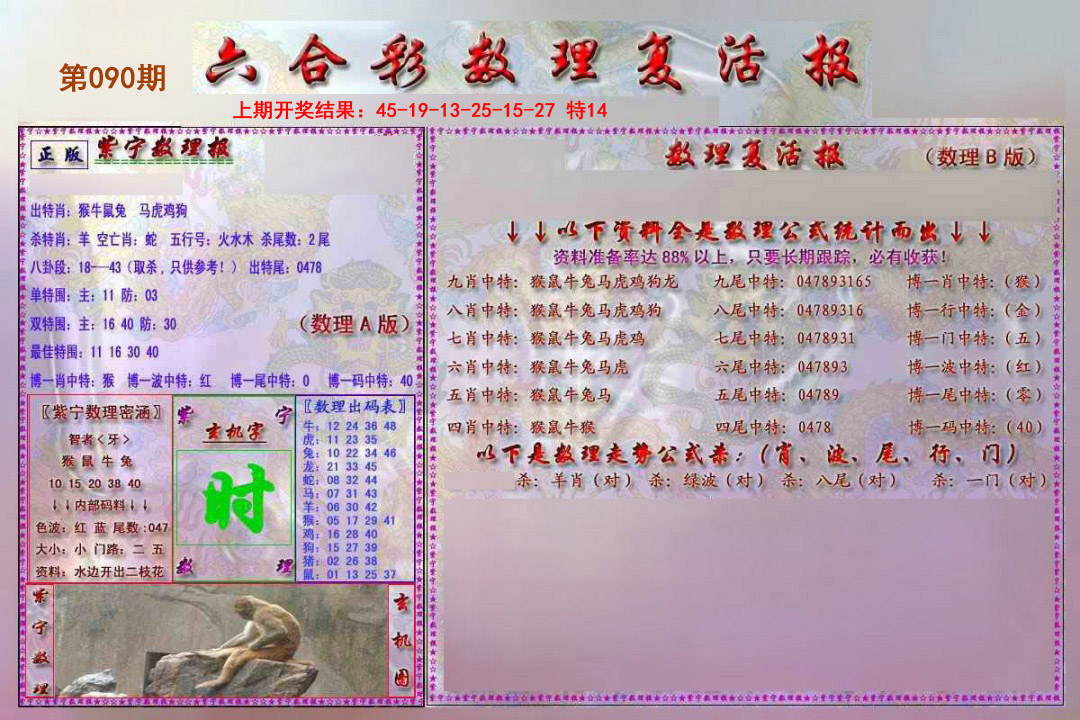 六合彩数理复活报
第090期
上期开奖结果：45-19-13-25-15-27 特14
正版 紫宁数理报
出特肖：猴牛鼠兔 马虎鸡狗
杀特肖：羊 空亡肖：蛇 五行号：火水木 杀尾数：2尾
八卦段：18--43（取杀，只供参考！） 出特尾：0478
单特围：主：11 防：03
双特围：主：16 40 防：30
（数理A版）
最佳特围：11 16 30 40
博一肖中特：猴 博一波中特：红 博一尾中特：0 博一码中特：40
〖紫宁数理密涵〗
智者<牙>
猴 鼠 牛 兔
10 15 20 38 40
↓↓内部码料↓↓
色波：红 蓝 尾数：047
大小：小 门路：二 五
资料：水边开出二枝花
紫 宁
玄机字
时
数 理
〖数理出码表〗
牛：12 24 36 48
虎：11 23 35
兔：10 22 34 46
龙：21 33 45
蛇：08 32 44
马：07 31 43
羊：06 30 42
猴：05 17 29 41
鸡：16 28 40
狗：15 27 39
猪：02 26 38
鼠：01 13 25 37
紫宁数理
玄机图
数理复活报 （数理B版）
↓↓以下资料全是数理公式统计而出↓↓
资料准备率达88%以上，只要长期跟踪，必有收获！
九肖中特：猴鼠牛兔马虎鸡狗龙 九尾中特：047893165 博一肖中特：（猴）
八肖中特：猴鼠牛兔马虎鸡狗 八尾中特：04789316 博一行中特：（金）
七肖中特：猴鼠牛兔马虎鸡 七尾中特：0478931 博一门中特：（五）
六肖中特：猴鼠牛兔马虎 六尾中特：047893 博一波中特：（红）
五肖中特：猴鼠牛兔马 五尾中特：04789 博一尾中特：（零）
四肖中特：猴鼠牛猴 四尾中特：0478 博一码中特：（40）
以下是数理走势公式杀：（肖、波、尾、行、门）
杀：羊肖（对） 杀：绿波（对） 杀：八尾（对） 杀：一门（对）